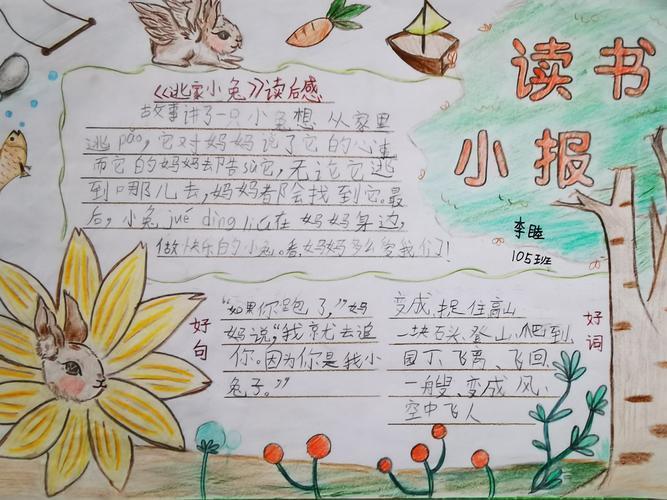 读书
小报
李睦
105班
《逃家小兔》读后感
故事讲了一只小兔想从家里
逃pǎo,它对妈妈说了它的心事
而它的妈妈却告sù它,无论它逃
到哪儿去,妈妈都会找到它。最
后,小兔jué dìng liú在妈妈身边,
做快乐的小兔。看,妈妈多么爱我们!
好句
“如果你跑了,”妈
妈说,“我就去追
你。因为你是我小
兔子。”
好词
变成、捉住、高山
一块石头、登山、爬到、
园丁、飞离、飞回、
一艘、变成、风、
空中飞人